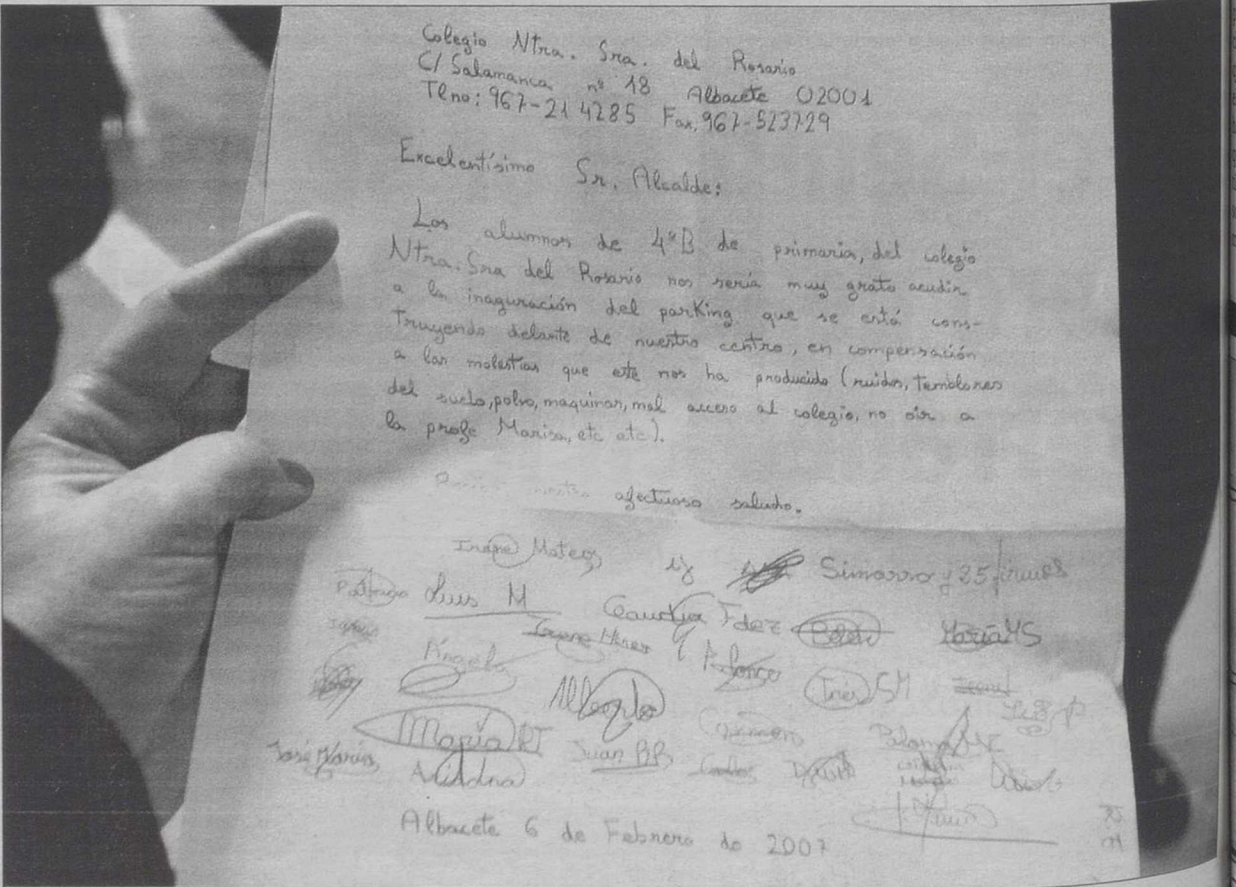 Colegio Ntra. Sra. del Rosario
C/ Salamanca nº 18 Albacete 02001
Tlno: 967-21 4285 Fax. 967-523729
Excelentísimo Sr. Alcalde:
Los alumnos de 4ºB de primaria, del colegio
Ntra. Sra del Rosario nos sería muy grato acudir
a la inaguración del parking que se está cons-
truyendo delante de nuestro centro, en compensación
a las molestias que este nos ha producido (ruidos, temblores
del suelo, polvo, maquinas, mal acceso al colegio, no oir a
la profe Marisa, etc etc).
afectuoso saludo.
Irene Mateos y Simarro y 25 firmas
Luis M Claudia Fdez Belén María MS
Irene
Ángela Alonso Inés SM
Alberto
María RT Carmen Paloma
José María Juan BB Carlos David
Ariadna
Albacete 6 de Febrero de 2007